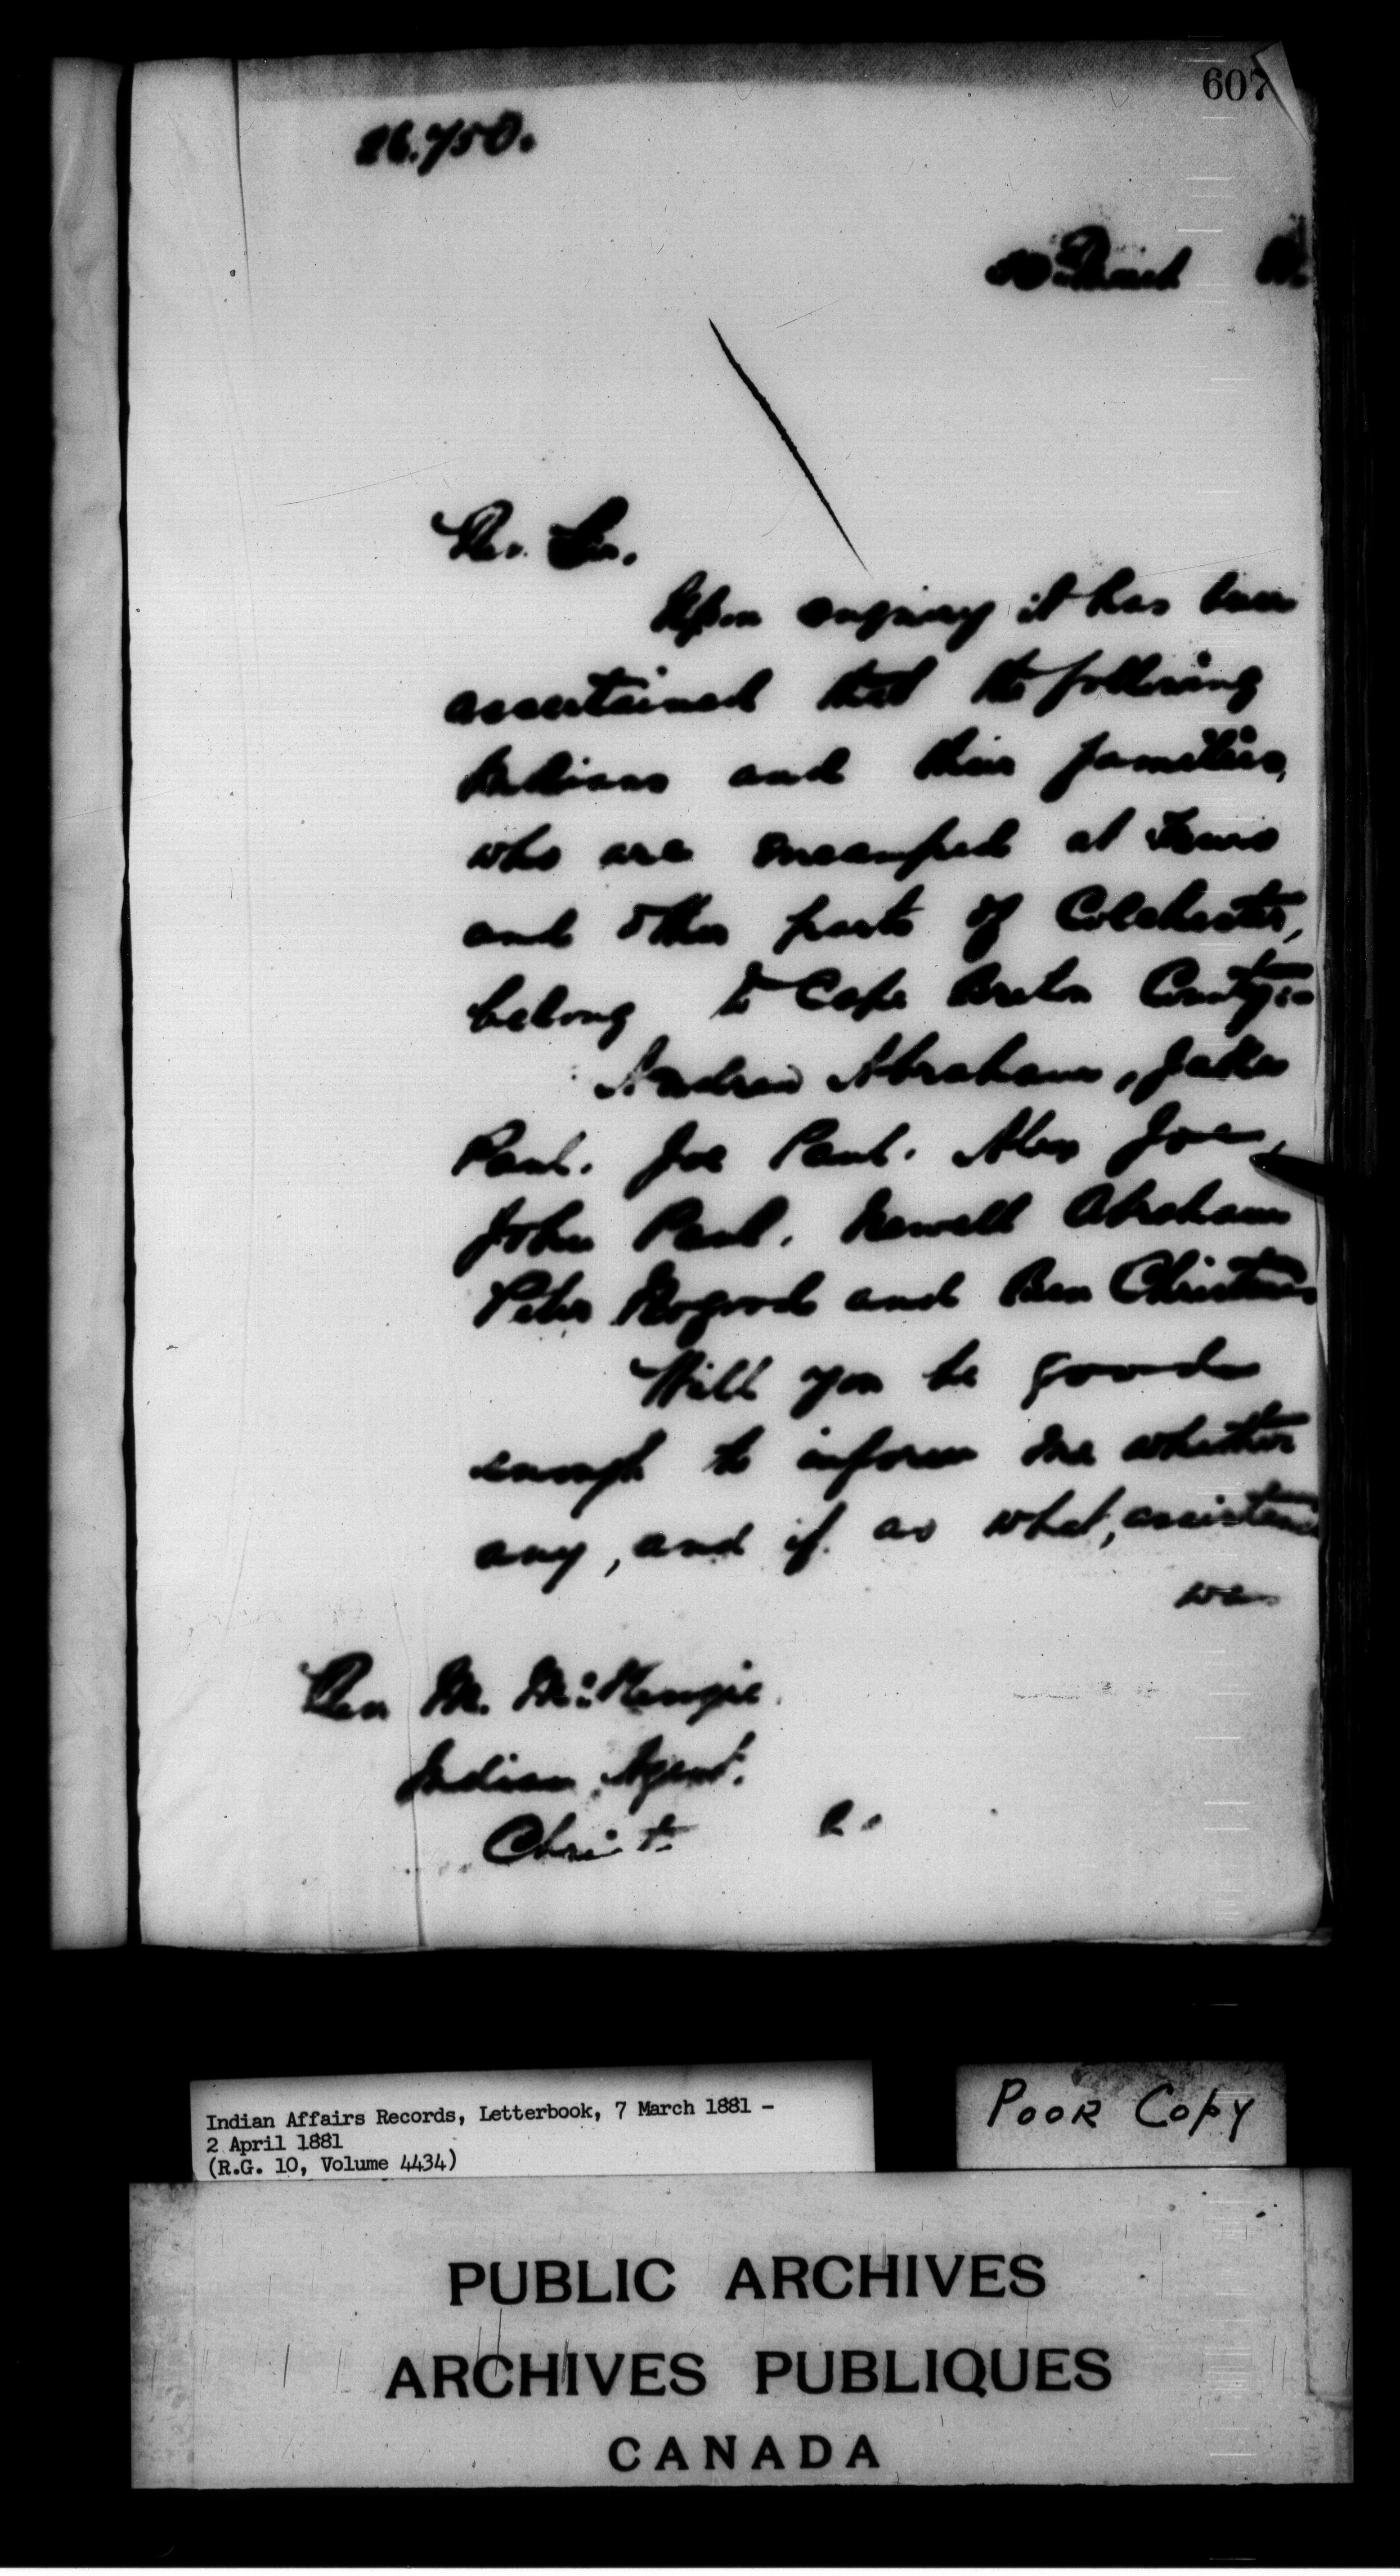 607
26.750.
30 March 81
Rev. Sir.
Upon enquiry it has been
ascertained that the following
Indians and their families,
who are encamped at Truro
and other parts of Colchester,
belong to Cape Breton County:-
Andrew Abraham,
Paul. Joe Paul. Alex Joe,
John Paul. Newell Abraham
Peter Nogood and Ben Christmas
Will you be good
enough to inform me whether
any, and if so what, assistance
was
Rev M. McKenzie.
Indian Agent.
Indian Affairs Records, Letterbook, 7 March 1881 -
2 April 1881
(R.G. 10, Volume 4434)
POOR COPY
PUBLIC ARCHIVES
ARCHIVES PUBLIQUES
CANADA